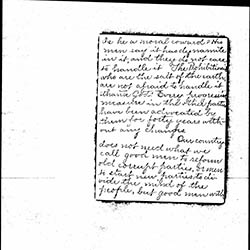 is he a moral coward? No
men say it has dynamite
in it, and they do not care
to handle it. The Abolitionists
who are the salt of the earth
are not afraid to handle it
thank God. Every progressive
measure in the other parties
have been advocated by
them for forty years with-
out any change
Our country
does not need what we
call good men to reform
old corrupt parties, or men
to start new parties to di-
vide the mind of the
people, but good men with